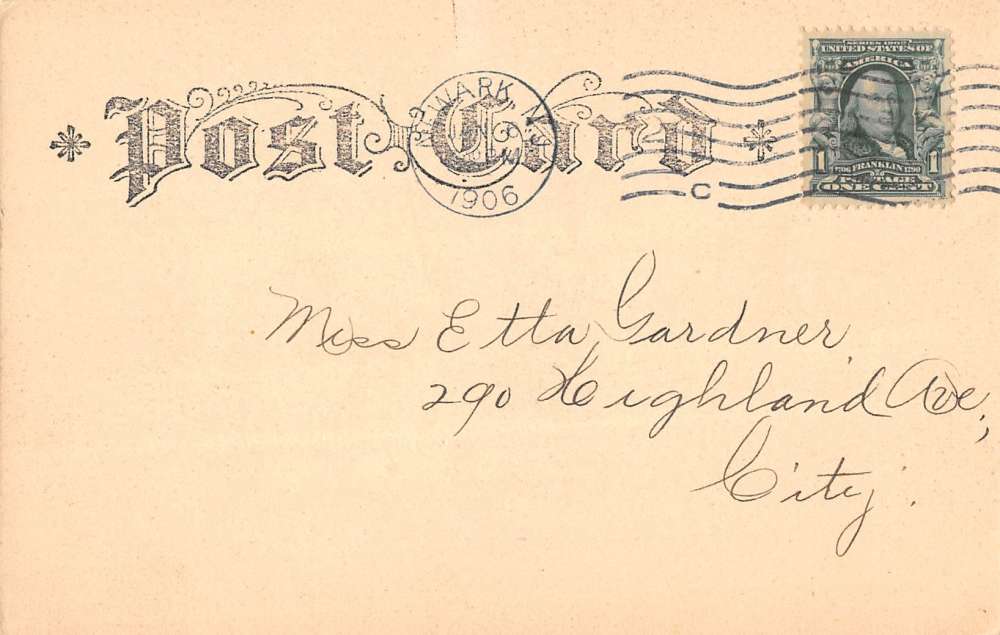 SERIES 1902
UNITED STATES OF
AMERICA
1 FRANKLIN 1
1706 1790
POSTAGE
ONE CENT
Post Card
NEWARK, N.J.
8
1906
C
Miss Etta Gardner,
290 Highland Ave,
City.